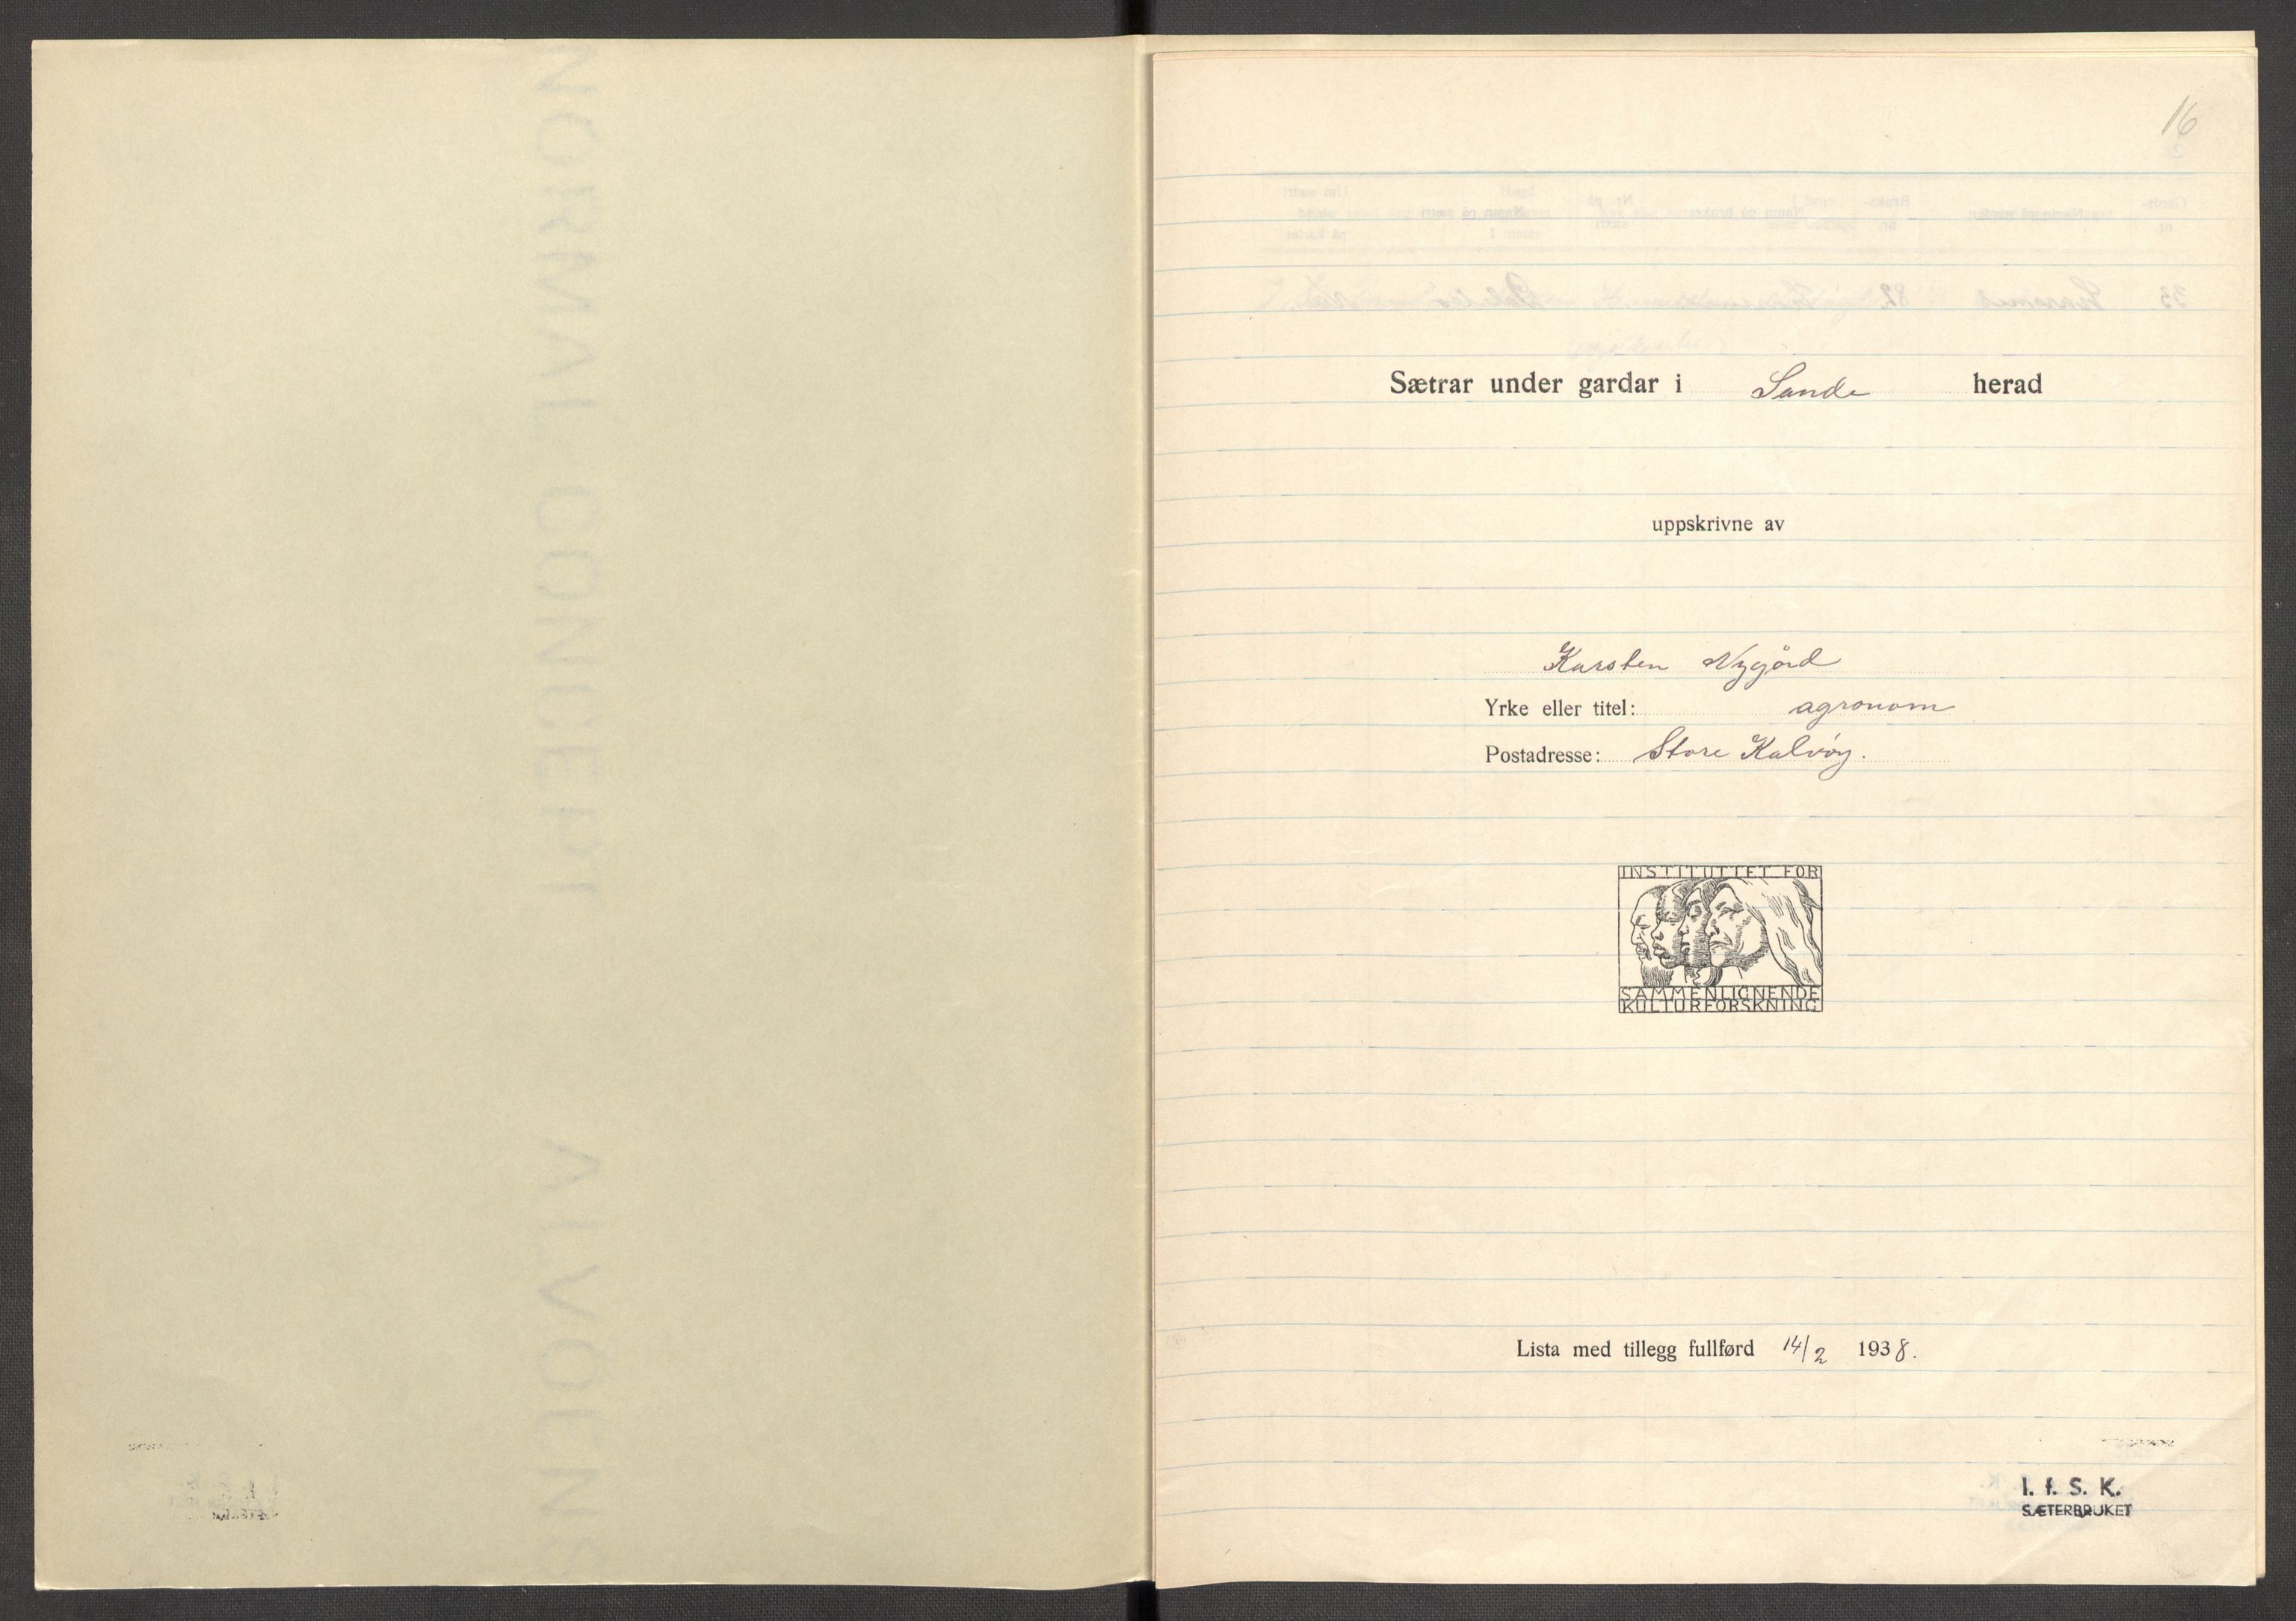 16
Sætrar under gardar i Sande herad
uppskrivne av
Karsten Nygård
Yrke eller titel: agronom
Postadresse: Store Kalvøy.
INSTITUTTET FOR
SAMMENLIGNENDE
KULTURFORSKNING
Lista med tillegg fullførd 14/2 1938.
I. f. S. K.
SÆTERBRUKET